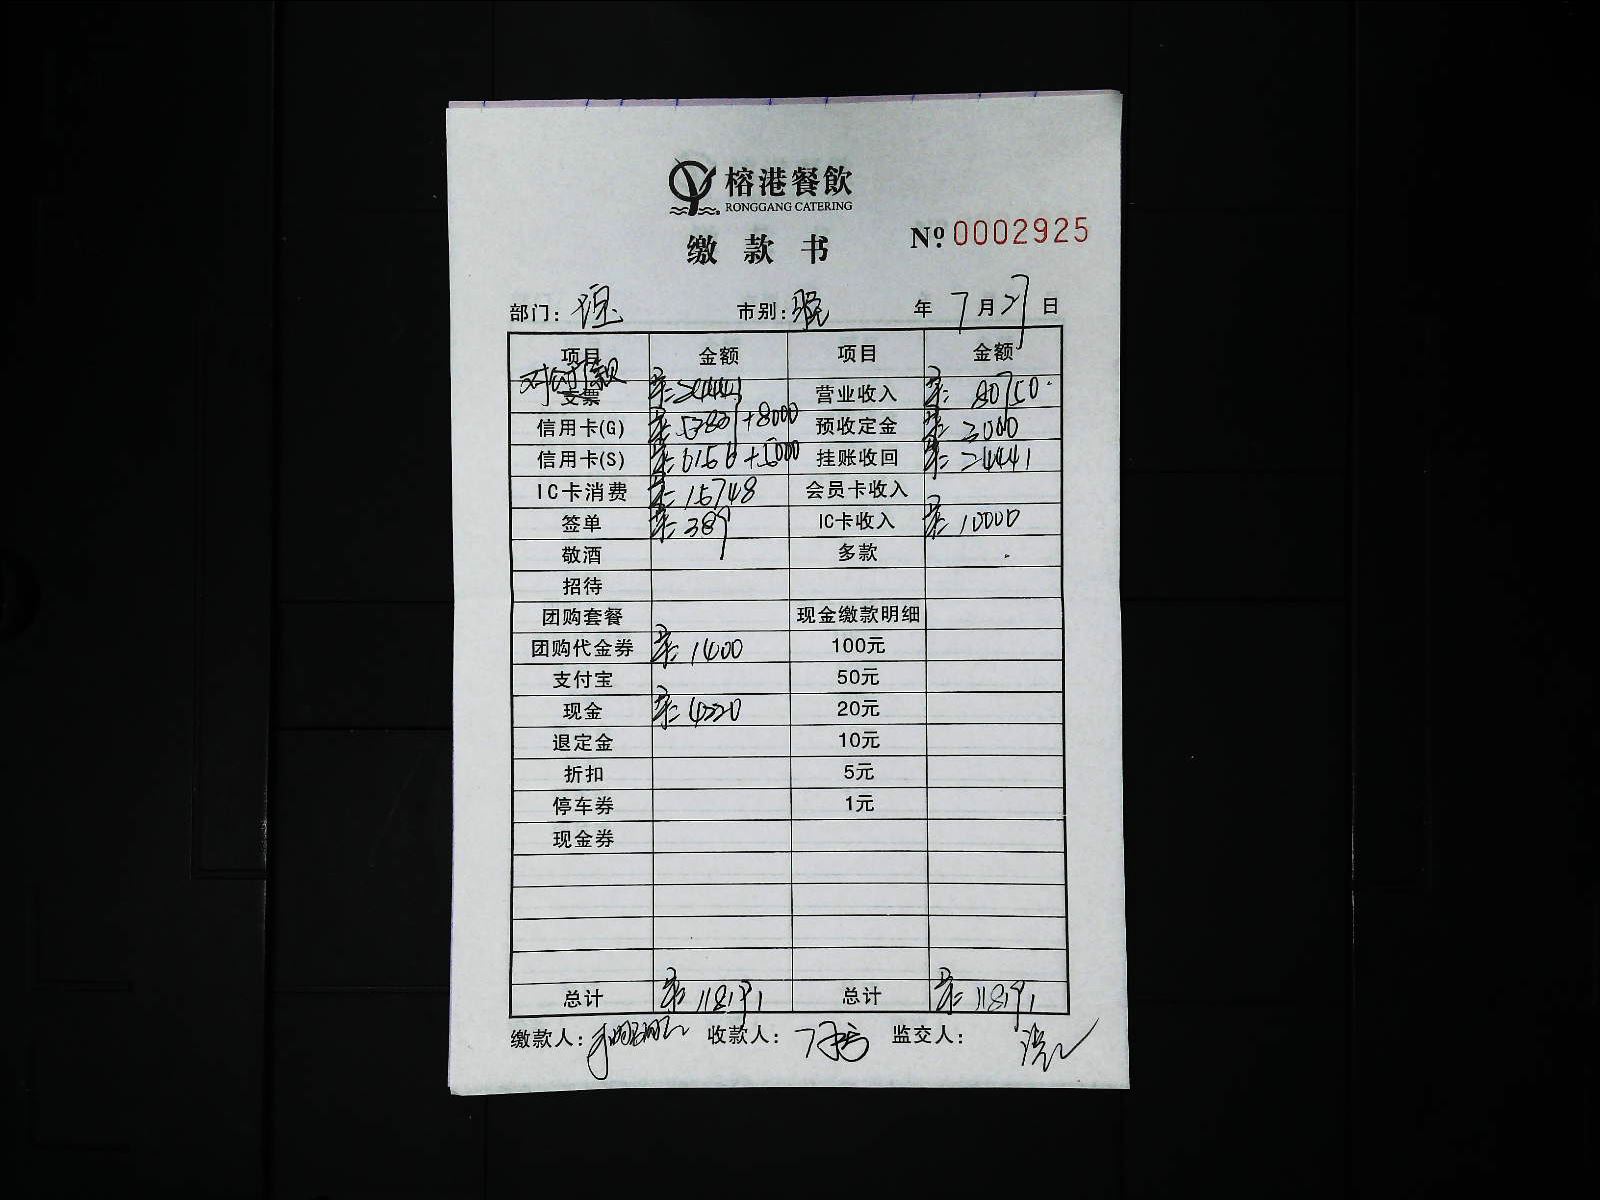 榕港餐飲
RONGGANG CATERING
缴款书 Nº 0002925
部门: 市别:晚 年 7月27日
项目 金额 项目 金额
支票 24441 营业收入 80750
信用卡(G) 52837+8000 预收定金 3000
信用卡(S) 6156+5000 挂账收回 24441
IC卡消费 15748 会员卡收入
签单 389 IC卡收入 10000
敬酒 多款
招待
团购套餐 现金缴款明细
团购代金券 1400 100元
支付宝 50元
现金 4220 20元
退定金 10元
折扣 5元
停车券 1元
现金券
总计 118191 总计 118191
缴款人: 收款人: 监交人: